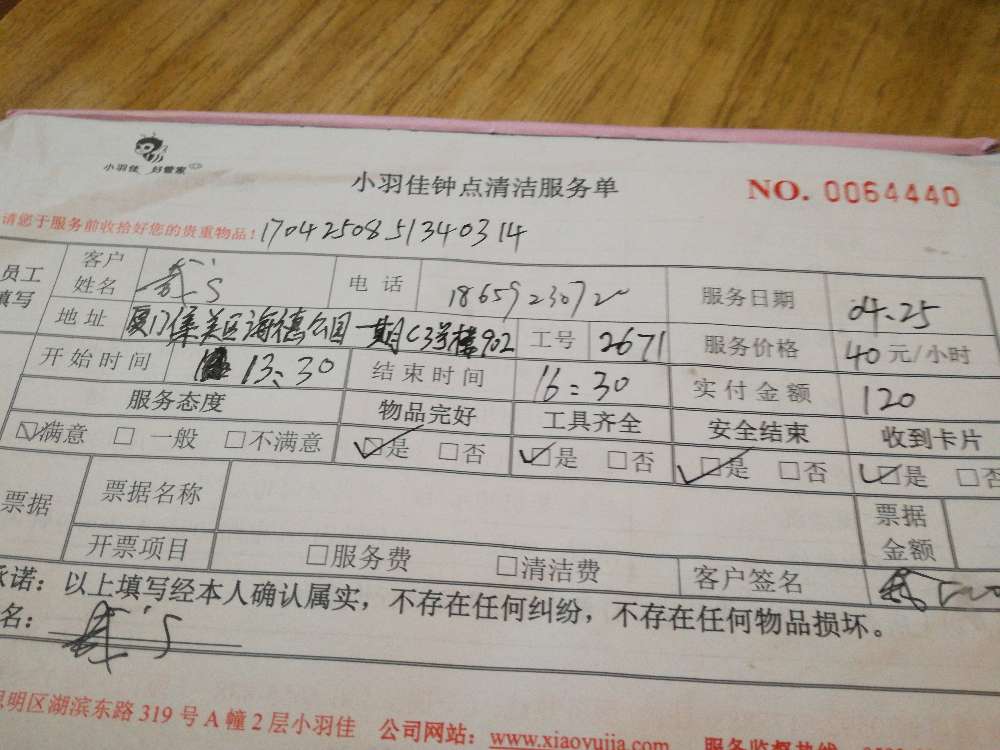 小羽佳 好管家
小羽佳钟点清洁服务单
NO. 0064440
请您于服务前收拾好您的贵重物品！1704250851340314
员工填写 客户姓名 电话 服务日期 04.25
地址 厦门集美区海德公园一期C3号楼902 工号 2671 服务价格 40元/小时
开始时间 13:30 结束时间 16:30 实付金额 120
服务态度 物品完好 工具齐全 安全结束 收到卡片
☑满意 □一般 □不满意 ☑是 □否 ☑是 □否 ☑是 □否 ☑是 □否
票据 票据名称 票据金额
开票项目 □服务费 □清洁费 客户签名
承诺：以上填写经本人确认属实，不存在任何纠纷，不存在任何物品损坏。
名：
思明区湖滨东路319号A幢2层小羽佳 公司网站：www.xiaoyujia.com 服务监督热线